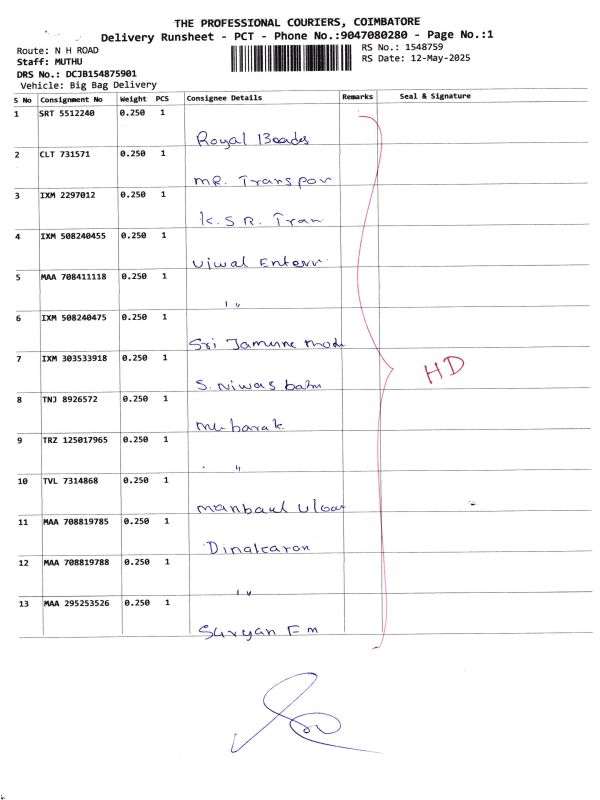 THE PROFESSIONAL COURIERS, COIMBATORE
Delivery Runsheet - PCT - Phone No.:9047080280 - Page No.:1
Route: N H ROAD
RS No.: 1548759
Staff: MUTHU
RS Date: 12-May-2025
DRS No.: DCJB154875901
Vehicle: Big Bag Delivery
S No Consignment No Weight PCS Consignee Details Remarks Seal & Signature
1 SRT 5512240 0.250 1
Royal
2 CLT 731571 0.250 1
MR. Transpor
3 IXM 2297012 0.250 1
K.S R. Tran
4 IXM 508240455 0.250 1
Ujwal Enterr
5 MAA 708411118 0.250 1
"
6 IXM 508240475 0.250 1
Sri Jamunne
7 IXM 303533918 0.250 1
HD
S. Niwas
8 TNJ 8926572 0.250 1
Mubarak
9 TRZ 125017965 0.250 1
"
10 TVL 7314868 0.250 1
11 MAA 708819785 0.250 1
Dinakaran
12 MAA 708819788 0.250 1
"
13 MAA 295253526 0.250 1
Suryan F m